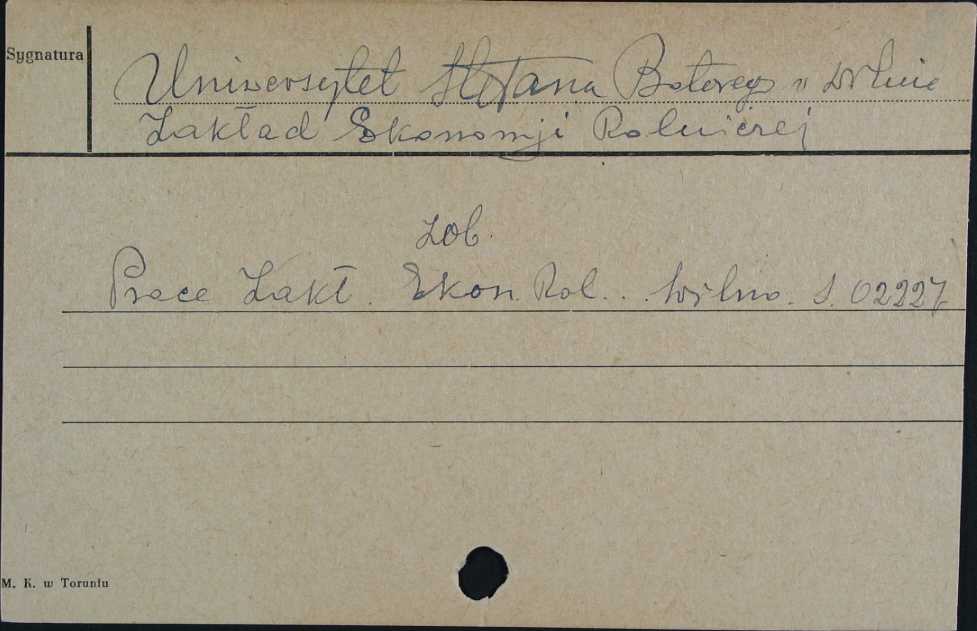 Sygnatura
Uniwersytet Stefana Batorego w Wilnie
Zakład Ekonomji Rolniczej
zob.
Prace Zakł. Ekon. Rol. . Wilno. S. 02227
M. K. w Toruniu